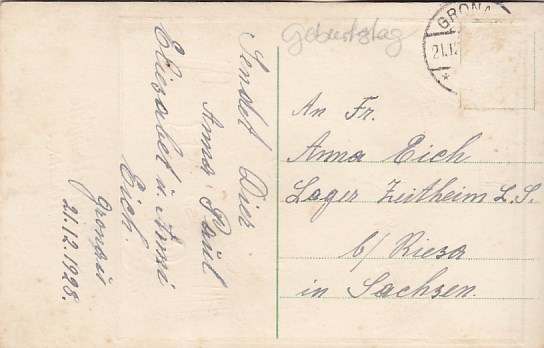 Geburtstag
GRONA
21.12
Sendet Dir
Anna Paul
Elisabet u. Anni
Eich.
Gronau
21.12.1928.
An Fr.
Anna Eich
Lager Zeitheim L. S.
b/ Riesa
in Sachsen.